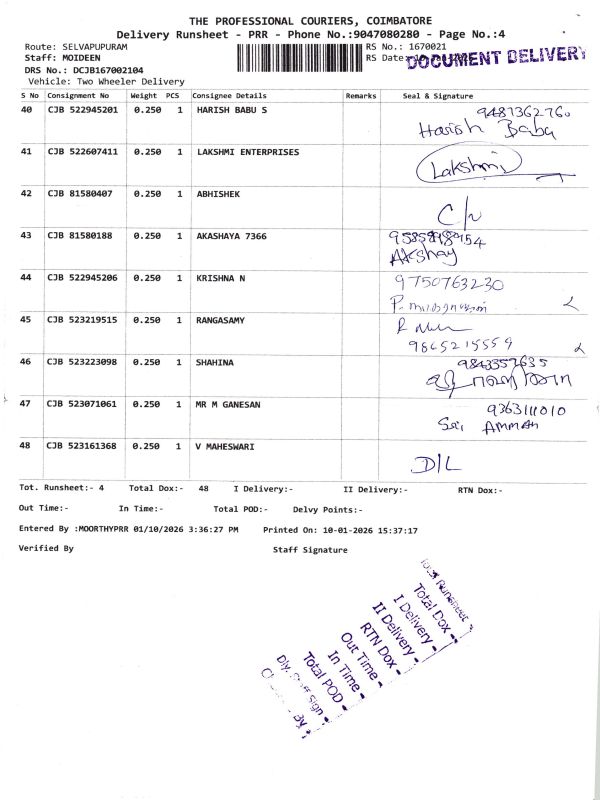 THE PROFESSIONAL COURIERS, COIMBATORE
Delivery Runsheet - PRR - Phone No.:9047080280 - Page No.:4
Route: SELVAPUPURAM
RS No.: 1670021
Staff: MOIDEEN
RS Date:
DOCUMENT DELIVERY
DRS No.: DCJB167002104
Vehicle: Two Wheeler Delivery
S No Consignment No Weight PCS Consignee Details Remarks Seal & Signature
40 CJB 522945201 0.250 1 HARISH BABU S
9487362760
Harish Baba
41 CJB 522607411 0.250 1 LAKSHMI ENTERPRISES
Lakshmi
42 CJB 81580407 0.250 1 ABHISHEK
43 CJB 81580188 0.250 1 AKASHAYA 7366
Akshay
44 CJB 522945206 0.250 1 KRISHNA N
9750763230
45 CJB 523219515 0.250 1 RANGASAMY
9865215559
46 CJB 523223098 0.250 1 SHAHINA
9843557635
47 CJB 523071061 0.250 1 MR M GANESAN
9363111010
Sri AMMAN
48 CJB 523161368 0.250 1 V MAHESWARI
D/L
Tot. Runsheet:- 4 Total Dox:- 48 I Delivery:- II Delivery:- RTN Dox:-
Out Time:- In Time:- Total POD:- Delvy Points:-
Entered By :MOORTHYPRR 01/10/2026 3:36:27 PM Printed On: 10-01-2026 15:37:17
Verified By Staff Signature
Total Runsheet -
Total Dox -
I Delivery -
II Delivery -
RTN Dox -
Out Time -
In Time -
Total POD -
Dly. Staff Sign -
By -